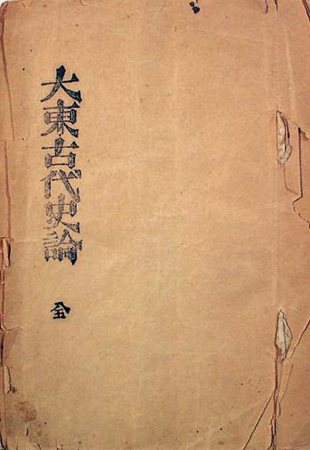 大東古代史論
全